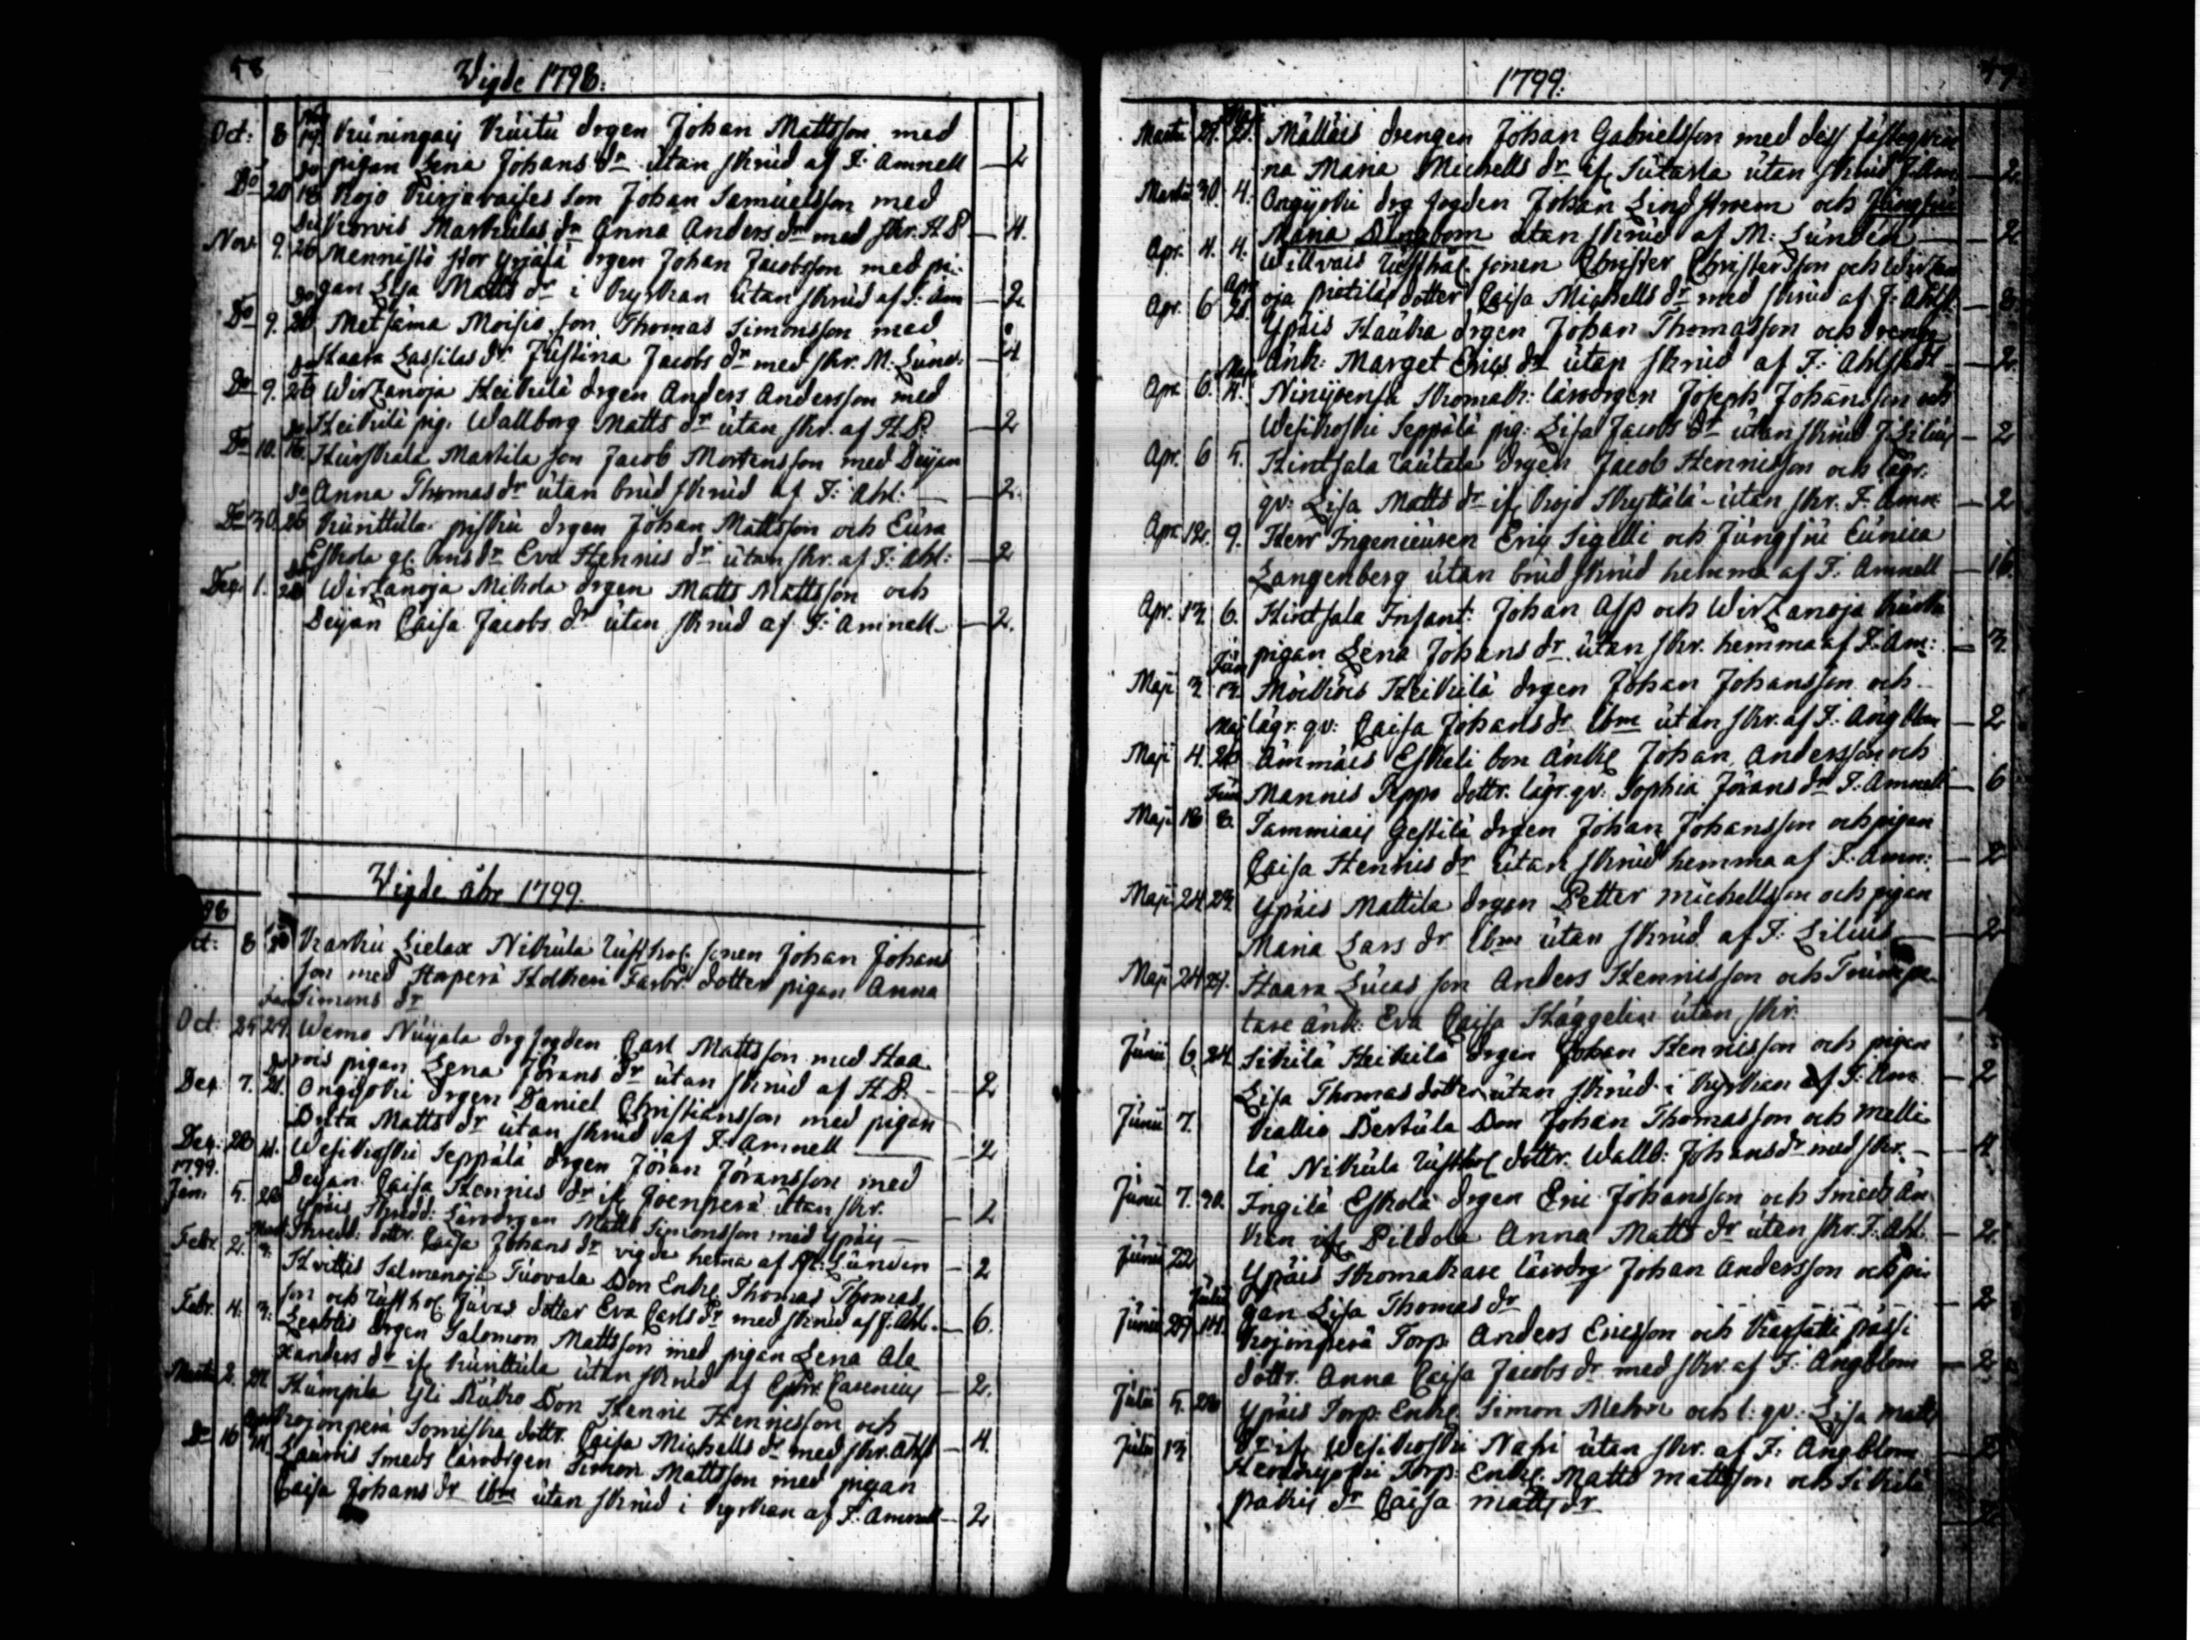 58
Vigde 1798.
Oct: 8 Kuningais Kuitu drgen Johan Mattsson med
pigan Lena Johans dr utan skrud af F. Amnell — 2
Do 20 18 Kojo Purjavaises son Johan Samuelsson med
Korvis Markulas dr Anna Anders dr med skr. H P — 4.
Nov. 9. 26 Mennistö stor Yrjälä drgen Johan Jacobsson med pi-
gan Lisa Matts dr i kyrkan utan skrud af F. Am — 2
Do 9. 26 Metsäma Moisio son Thomas Simonsson med
Haara Lassilas dr Justina Jacobs dr med skr. M. Lund. — 4
Do 9. 26 Wirtzanoja Heikkilä drgen Anders Andersson med
Heikkilä pig. Wallborg Matts dr utan skr. af H P. — 2
Do 10. 16. Kurskala Martila son Jacob Mortensson med Deijan
Anna Thomas dr utan brudskrud af F. Ahl. — 2.
Do 30. 26 Kunttula drgen Johan Mattsson och Eura
Eskola Eva Hennis dr utan skr. af F. Ahl. — 2
Dec. 1. 26 Wirtzanoja Mikola drgen Matts Mattsson och
Deijan Caisa Jacobs dr utan skrud af F. Amnell — 2.
Vigde åhr 1799.
98
Oct: 8 Karku Lielax Nikula Rusthol. sonen Johan Johans
son med Haperä Holkeri Farbr. dotter pigan Anna
Simons dr
Oct. 25 29. Wemo Nuijala drgfogden Carl Mattsson med Haa
rois pigan Lena Jörans dr utan skrud af H P. — 2
Dec. 7. 21. Ongijoki drgen Daniel Christiansson med pigan
Brita Matts dr utan skrud af F. Amnell — 2
Dec. 28 Wesikoski Seppälä drgen Jöran Jöransson med
1799. Deijan Caisa Hennis dr if. Joenperä utan skr. — 2
Jan. 5. 20 Ypäis Skredd. Lärodrgen Matts Simonsson med Ypäis
Skredd. dottr. Caisa Johans dr vigde hema af M. Lunden — 2
Febr. 2. 3. Hvittis Salmenoja Tuovala Bon Enkl. Thomas Thomas
son och Rusthol. Juvas dotter Eva Carls dr med skrud af F. Ahl. — 6.
Febr. 4. 3. drgen Salomon Mattsson med pigan Lena Ale
xanders dr if. Kunttula utan skrud af Casenius — 2.
Martii 2. Humpila Yli Bon Henric Henricsson och
Kojonperä Someska dottr. Caisa Michells dr med skr. Ahlst — 4.
Do 16 Lauris Smeds lärodrgen Simon Mattsson med pigan
Caisa Johans dr ibm utan skrud i kyrkan af F. Amnell — 2
1799.
Martii 21. Mälläis drengen Johan Gabrielsson med dess fästeqvin
na Maria Michells dr if. Sutarla utan skrud F. Am — 2.
Martii 30. 4. Ongijoki drg fogden Johan Lindstroem och Jungfru
Maria utan skrud af M. Lunden — 2
Apr. 4. 4. Willvais Rusthål. sonen Christer Christersson och Wirtzan
oja dotter Caisa Michells dr med skrud af F. Ahlst — 8
Apr. 6 Ypäis Hauka drgen Johan Thomasson och dreng
Änk. Marget Erics dr utan skrud af F. Ahlstedt — 2
Apr. 6. 4. Ninijoensu Skomak. lärodrgen Joseph Johansson och
Wesikoski Seppälä pig. Lisa Jacobs dr utan skrud F. Lilius — 2
Apr. 6 5. Hintsala Rautala drgen Jacob Hennisson och lägr.
qv. Lisa Matts dr if. Kojo Skyttälä utan skr. F. Amn — 2
Apr. 12. 9. Herr Ingenieuren Eric Sigelli och Jungfru Eunica
Langenberg utan brudskrud hemma af F. Amnell — 16
Apr. 13. 6. Hintsala Infant. Johan Asp och Wirtzanoja
pigan Lena Johans dr utan skr. hemma af F. Am: — 3
Maji 3. 13. Heikkilä drgen Johan Johansson och
lägr. qv. Caisa Johans dr ibm utan skr. af F. Ångblom — 2
Maji 4. 26 Ämmäis Eskeli bon änkl. Johan Andersson och
Mannis Seppo dottr. lägr. qv. Sophia Jörans dr F. Amnell — 6
Maji 18 8. Tammiais Gestilä drgen Johan Johansson och pigan
Caisa Hennis dr utan skrud hemma af F. Amn. — 2
Maji 24 Ypäis Mattila drgen Petter Michellsson och pigan
Maria Lars dr ibm utan skrud af F. Lilius — 2
Maji 24 Haara Lucas son Anders Hennisson och Trumpe-
tare änk. Eva Caisa Häggelin utan skr.
Junii 6. 24. Sikilä Heikkilä drgen Johan Hennisson och pigan
Lisa Thomas dotter utan skrud i kyrkan af F. Am — 2
Junii 7. Kallio Bertula Bon Johan Thomasson och Melli
lä Nikula Rusthol dottr. Wallb. Johans dr med skr. — 4
Junii 7. 30. Ingilä Eskola drgen Eric Johansson och Smeds än
kan if. Pildola Anna Matts dr utan skr. F. Ahl. — 2
Junii 22 Ypäis Skomakare lärodrg Johan Andersson och pi
gan Lisa Thomas dr — 2
Junii 29. 14. Kojonperä Torp. Anders Ericsson och
dottr. Anna Caisa Jacobs dr med skr. af F. Ångblom — 2
Julii 5. 28 Ypäis Torp. Enkl. Simon och l. qv. Lisa Matts
dr if. Wesikoski Nasi utan skr. af F. Ångblom — 2
Julii 13 Torp. Enkl. Matts Mattsson och Sikilä
dr Caisa Matts dr — 2